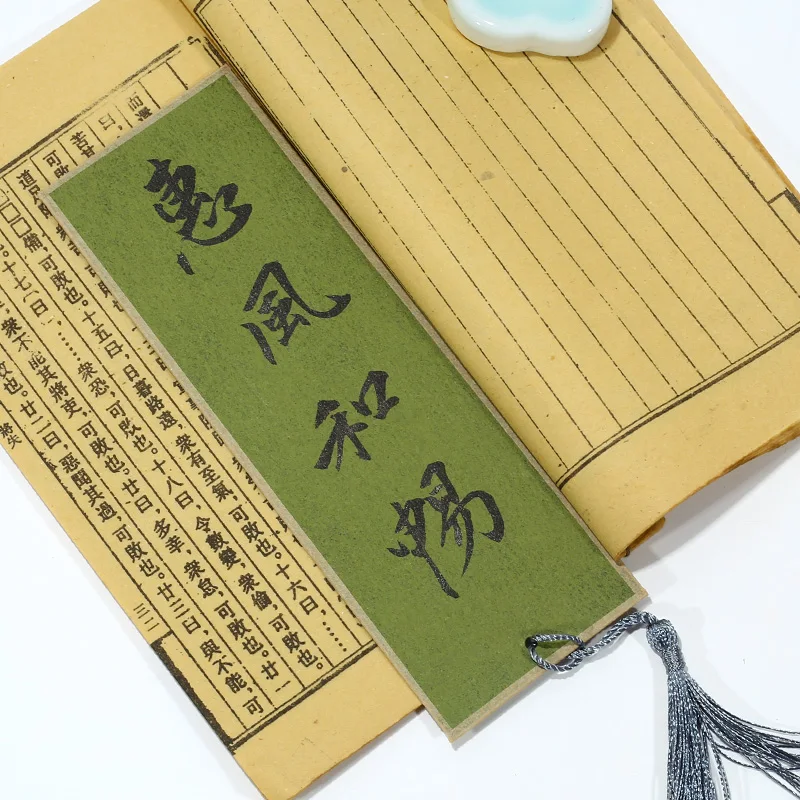 惠風和暢
可敗也。十五曰，日暮路遠，衆有至氣，可敗也。十六曰，……
可敗也。十七〔曰〕，……衆恐，可敗也。十八曰，令數變，衆偷，可敗也。
衆不能其將吏，可敗也。廿曰，多幸，衆怠，可敗也。廿一
敗也。廿二曰，惡聞其過，可敗也。廿三曰，與不能，可
將失
三二